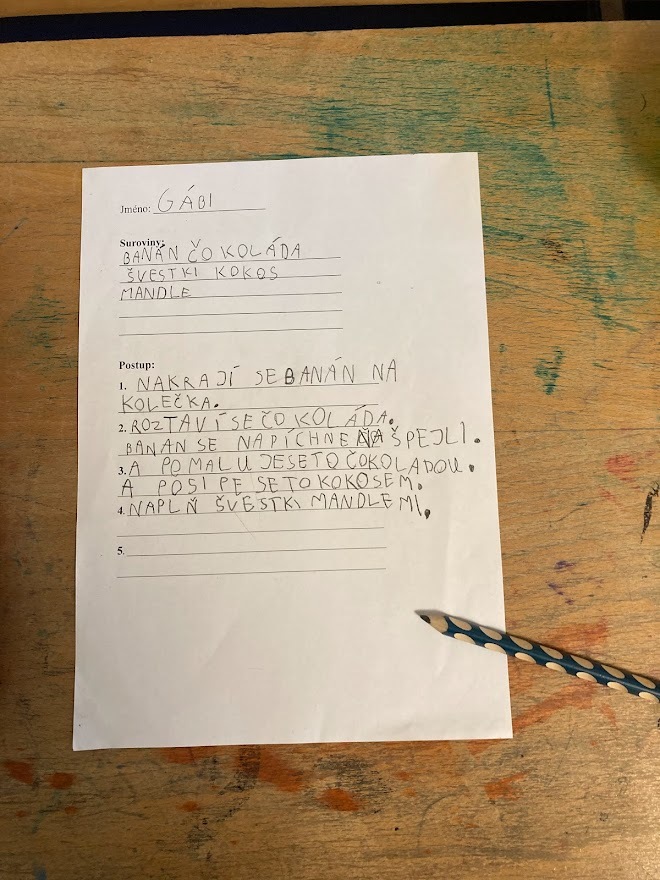 Jméno: GÁBI
Suroviny:
BANÁN ČOKOLÁDA
ŠVESTKI KOKOS
MANDLE
Postup:
1. NAKRAJÍ SE BANÁN NA
KOLEČKA.
2. ROZTAVÍ SE ČOKOLÁDA.
BANAN SE NAPÍCHNE NA ŠPEJLI.
3. A POMALU JESETO ČOKOLADOU.
A POSIPE SETO KOKOSEM.
4. NAPLŇ ŠVESTKI MANDLEMI.
5.